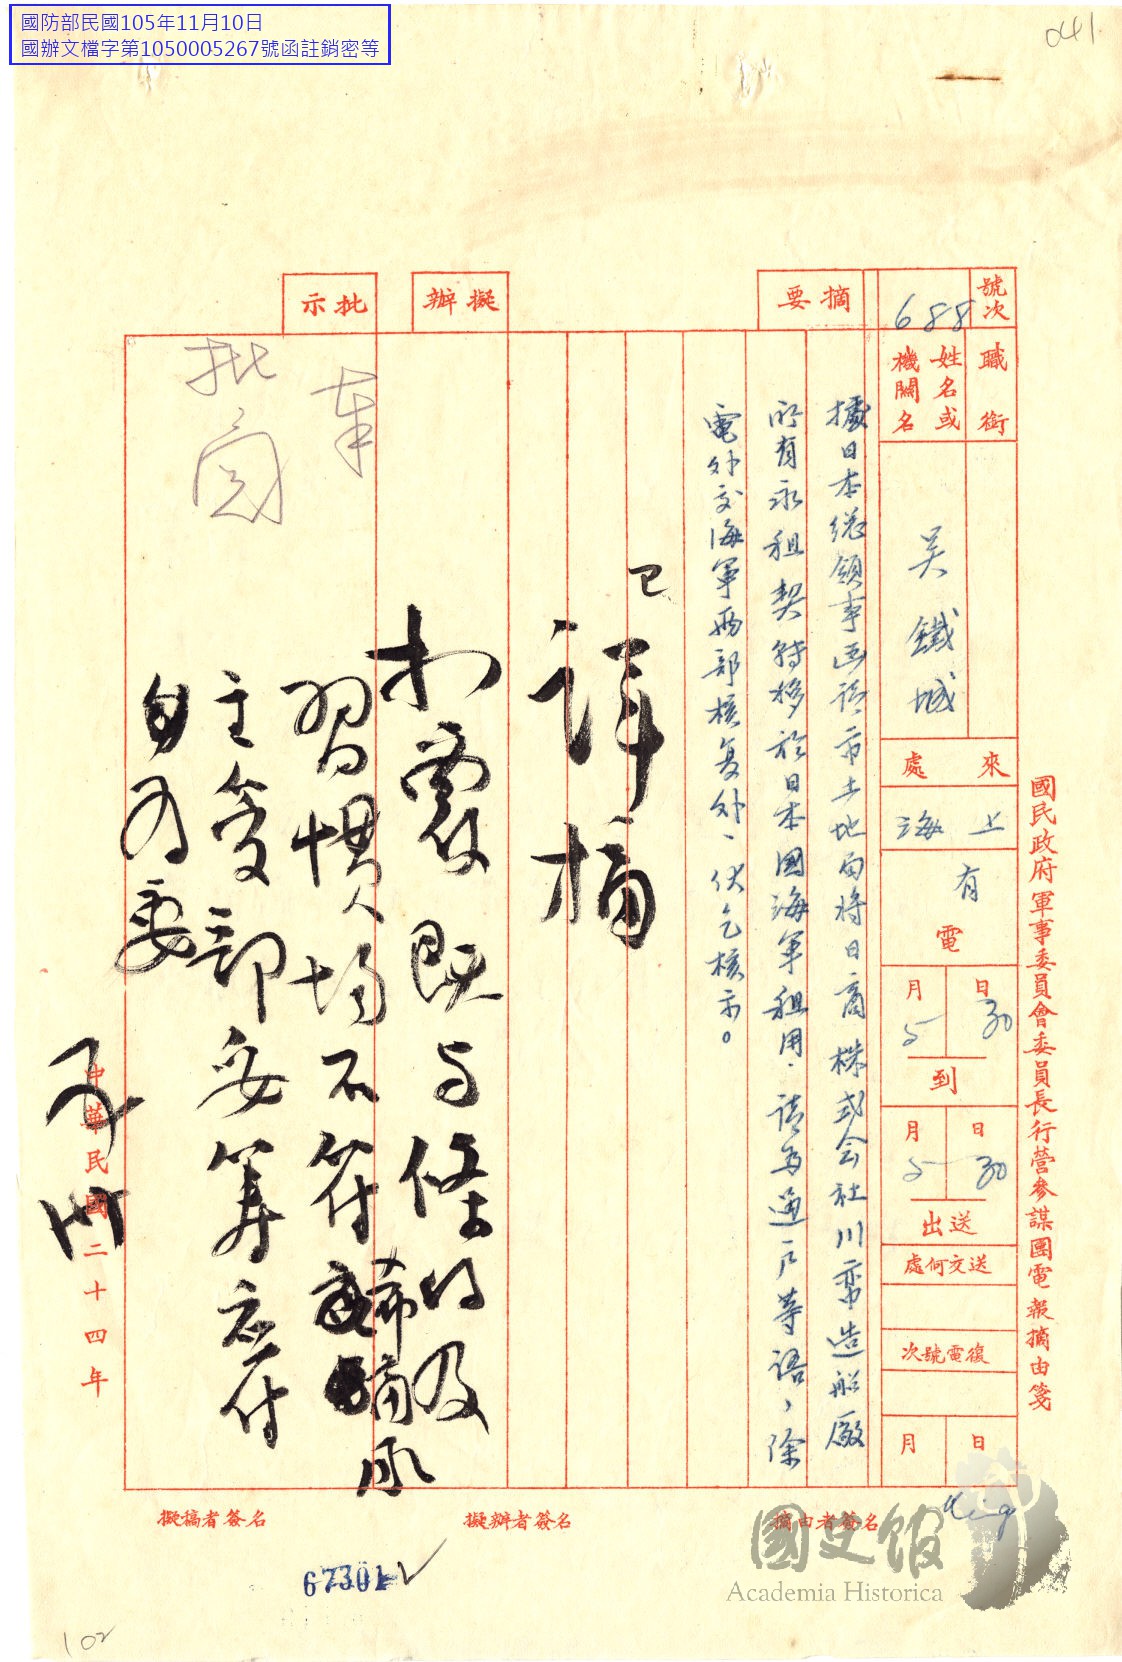 國防部民國105年11月10日
國辦文檔字第1050005267號函註銷密等
041
國民政府軍事委員會委員長行營參謀團電報摘由箋
號次
688
職銜
姓名或
機關名
吳鐵城
來處
上海
有
電
5月30日
到
5月30日
送出
送交何處
復電號次
月日
摘要
據日本總領事函請市土地局將日商株式会社川崎造船厰
所有永租契轉移於日本國海軍租用、請為過户等語、除
電外交海軍兩部核复外、伏乞核示。
擬辦
已
詳摘
如覆既与條約及
習慣均不符
主管部妥筹应付
批示
奉
批閱
中華民國二十四年
摘由者簽名
擬辦者簽名
擬稿者簽名
102
國史館
Academia Historica